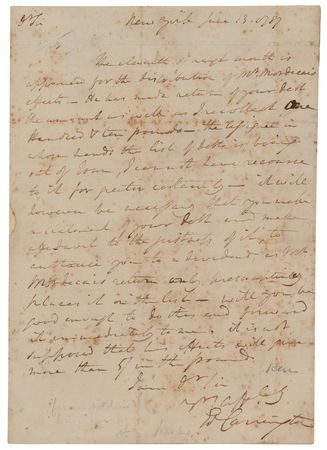 Dr Sir
New York June 13. 1787
The eleventh of next month is
appointed for the distribution of Mr Mordecai's
effects — He has made return of your Debt
the amount as well as I recollect One
Hundred & ten pounds — the assignee in
whose hands the list of debts is being
out of Town, I cannot have recourse
to it for greater certainty — it will
however be necessary that you make
a statement of your Debt and make
affidavit to the justness of it, to
entitle you to a dividend as Mr
Mordecai's return only
places it on the list — will you be
good enough to do this and forward
it immediately to me. it is not
supposed that his effects will pay
more than 5/ in the pound.
I am Dr Sir
Ed Carrington